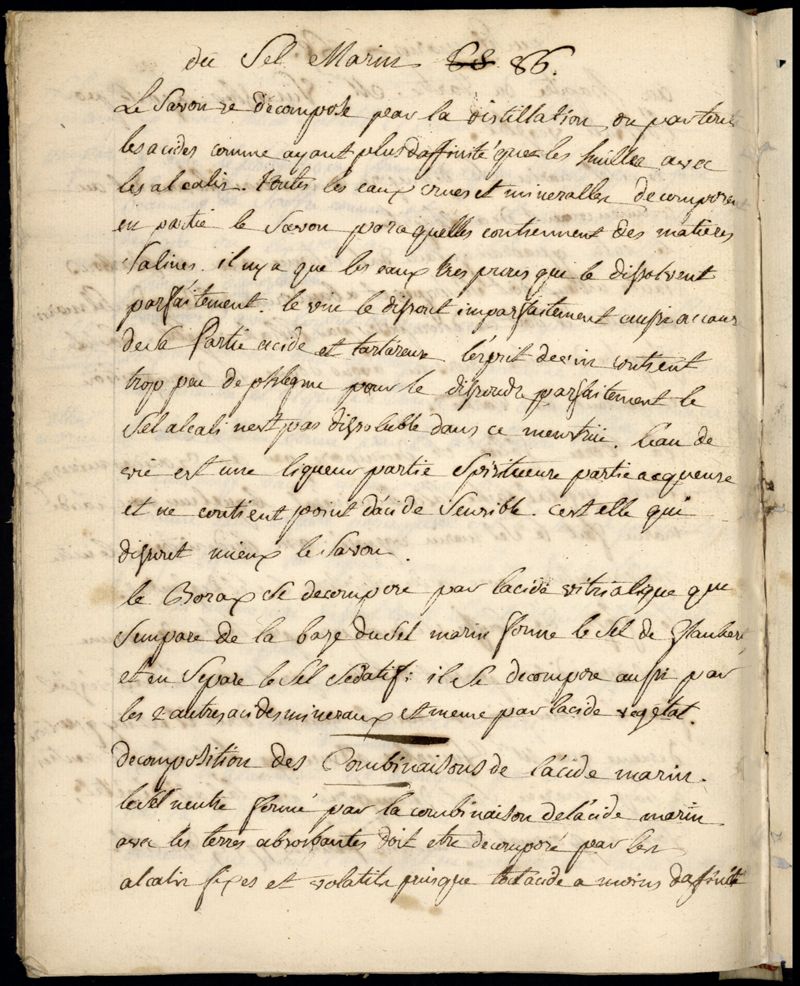 du Sel Marin 88 86.
Le Savon se decompose par la distillation ou par tous
les acides comme ayant plus daffinité que les huilles avec
les alcalis. toutes les eaux crues et mineralles decomposent
en partie le Savon parcequelles contiennent des matieres
Salines. il n'y a que les eaux tres pures qui le dissolvent
parfaitement. le vin le dissout imparfaitement aussi a cause
de sa Partie acide et tartareuse l'esprit de vin contient
trop peu de phlegme pour le dissoudre parfaitement le
Sel alcali n'est pas dissoluble dans ce menstrüe. l'eau de
vie est une liqueur partie Spiritueuse partie acqueuse
et ne contient point d'acide Sensible. c'est elle qui
dissout mieux le Savon.
le Borax se decompose par lacide vitriolique qui
Sempare de la baze du Sel marin forme le Sel de Glauber
et en Separe le Sel Sedatif: il Se decompose aussi par
les 2 autres acides mineraux et meme par lacide vegetal.
decomposition des Combinaisons de l'acide marin.
le sel neutre formé par la combinaison de l'acide marin
avec les terres absorbantes doit etre decomposé par les
alcalis fixes et volatils puisque tout acide a moins daffinité